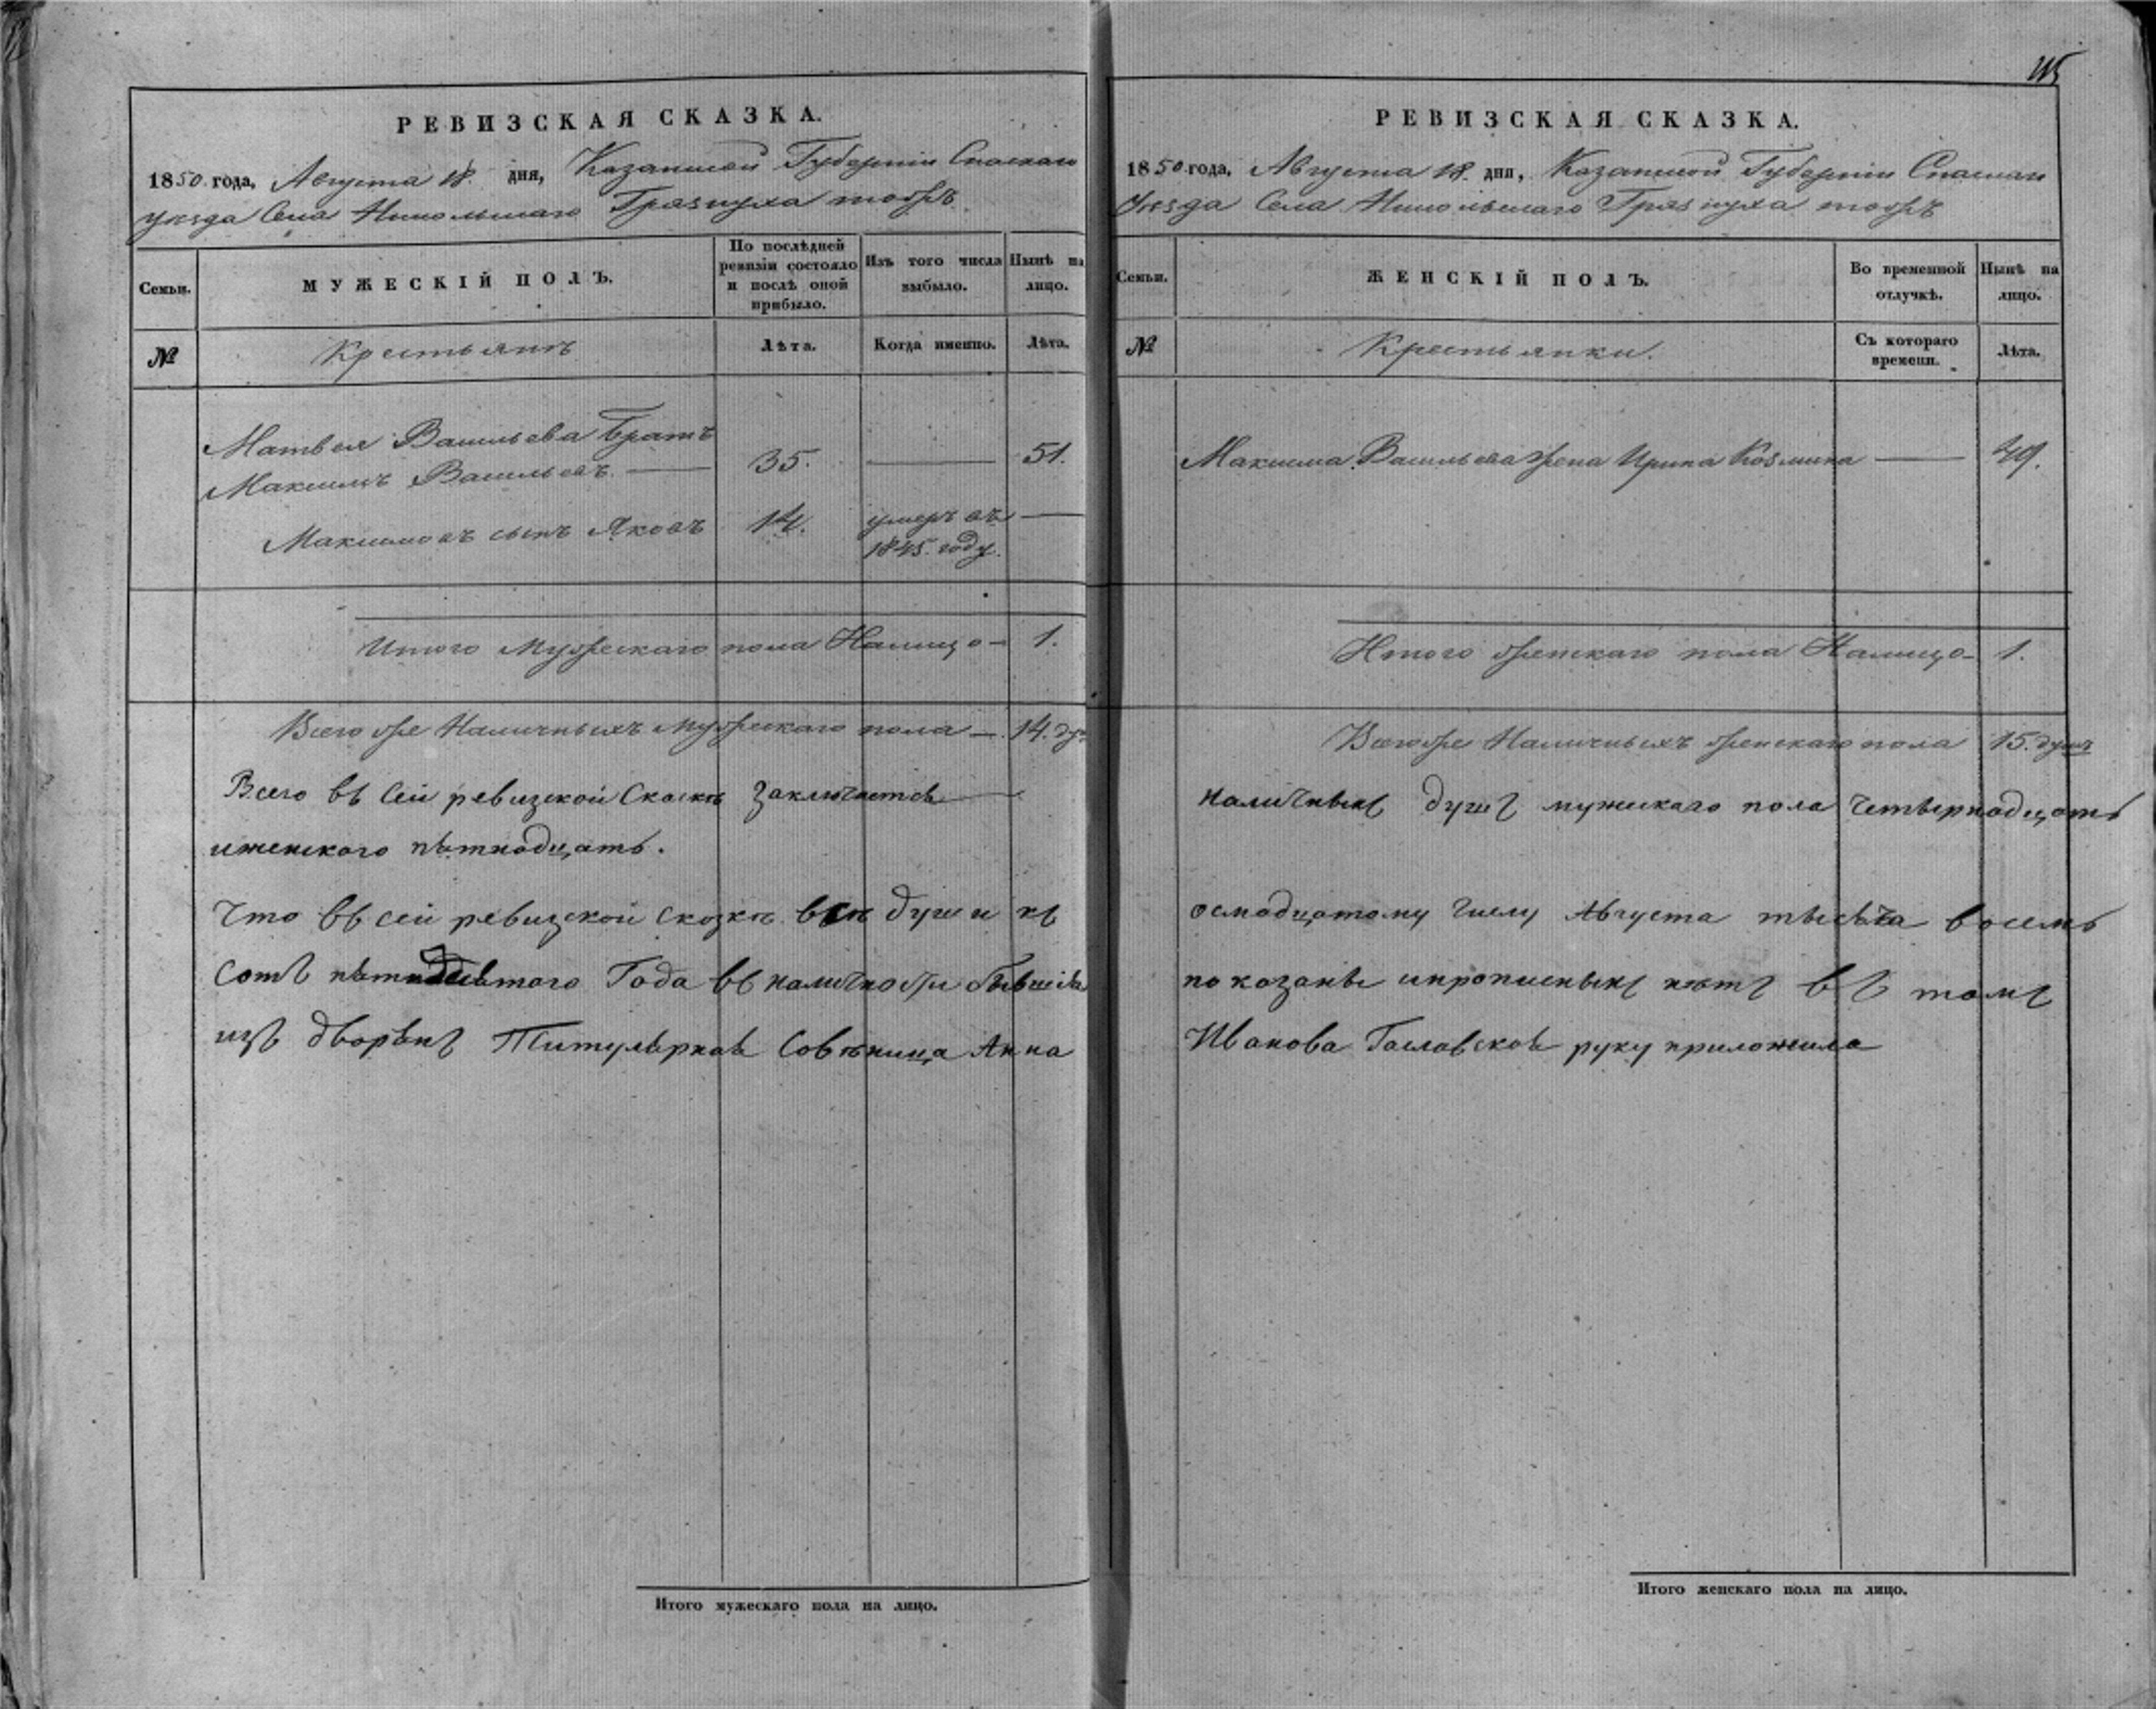 115
РЕВИЗСКАЯ СКАЗКА.
1850 года, Августа 18. дня, Казанской Губерніи Спаскаго
уезда Села Никольскаго Грязнуха тожъ
Семьи.
МУЖЕСКІЙ ПОЛЪ.
По послѣдней ревизіи состояло и послѣ оной прибыло.
Изъ того числа выбыло.
Нынѣ на лицо.
№
Крестьянъ
Лѣта.
Когда именно.
Лѣта.
Матвея Васильева Братъ
Максимъ Васильевъ. — 35. — 51.
Максимовъ сынъ Яковъ 14. умеръ въ —
1845. году.
Итого Мужескаго пола Налицо — 1.
Всего же Наличныхъ Мужескаго пола — 14. ду
Всего въ сей ревизской Скаске заключается —
иженского пятнадцать.
Что въ сей ревизской сказке все души къ
сотъ пятидесятого Года въ наличности бывшія
изъ дворянъ Титулярная Советница Анна
Итого мужескаго пола на лицо.
РЕВИЗСКАЯ СКАЗКА.
1850 года, Августа 18. дня, Казанской Губерніи Спаскаго
Уезда Села Никольскаго Грязнуха тожъ
Семьи.
ЖЕНСКІЙ ПОЛЪ.
Во временной отлучкѣ.
Нынѣ на лицо.
№
Крестьянки.
Съ котораго времени.
Лѣта.
Максима Васильева жена Ирина Козмина — 49.
Итого женскаго пола Налицо — 1.
Всегоже Наличныхъ женскаго пола 15. душъ
наличныхъ душъ мужскаго пола четырнадцать
осмадцатому числу Августа тысяча восемь
показаны ипрописныхъ нетъ въ томъ
Иванова руку приложила
Итого женскаго пола на лицо.